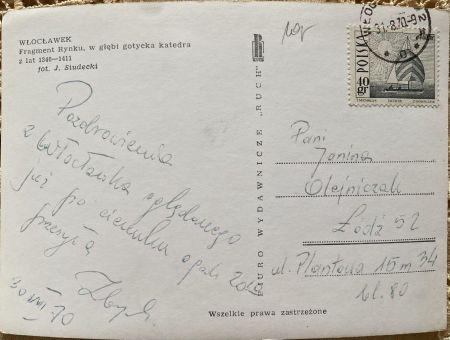 WŁOCŁAWEK
Fragment Rynku, w głębi gotycka katedra
z lat 1340—1411
fot. J. Siudecki
Pozdrowienia
z Włocławka oglądanego
już po ciemku o godz 20
przesyła
Zbych.
30 VIII 70
BIURO WYDAWNICZE „RUCH"
WŁOC
31-8.70-9
POLSKA
40 gr
Pani
Janina
Olejniczak
Łódź 52
ul. Plantowa 15 m 34
bl. 80
Wszelkie prawa zastrzeżone